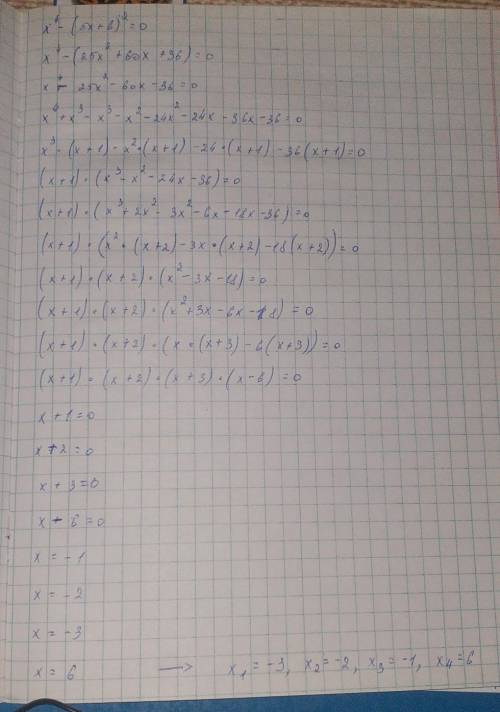 x⁴ - (5x + 6)² = 0
x⁴ - (25x² + 60x + 36) = 0
x⁴ - 25x² - 60x - 36 = 0
x⁴ + x³ - x³ - x² - 24x² - 24x - 36x - 36 = 0
x³ · (x + 1) - x² · (x + 1) - 24 · (x + 1) - 36 (x + 1) = 0
(x + 1) · (x³ - x² - 24x - 36) = 0
(x + 1) · (x³ + 2x² - 3x² - 6x - 18x - 36) = 0
(x + 1) · (x² · (x + 2) - 3x · (x + 2) - 18 (x + 2)) = 0
(x + 1) · (x + 2) · (x² - 3x - 18) = 0
(x + 1) · (x + 2) · (x² + 3x - 6x - 18) = 0
(x + 1) · (x + 2) · (x · (x + 3) - 6 (x + 3)) = 0
(x + 1) · (x + 2) · (x + 3) · (x - 6) = 0
x + 1 = 0
x + 2 = 0
x + 3 = 0
x - 6 = 0
x = -1
x = -2
x = -3
x = 6 → x₁ = -3, x₂ = -2, x₃ = -1, x₄ = 6